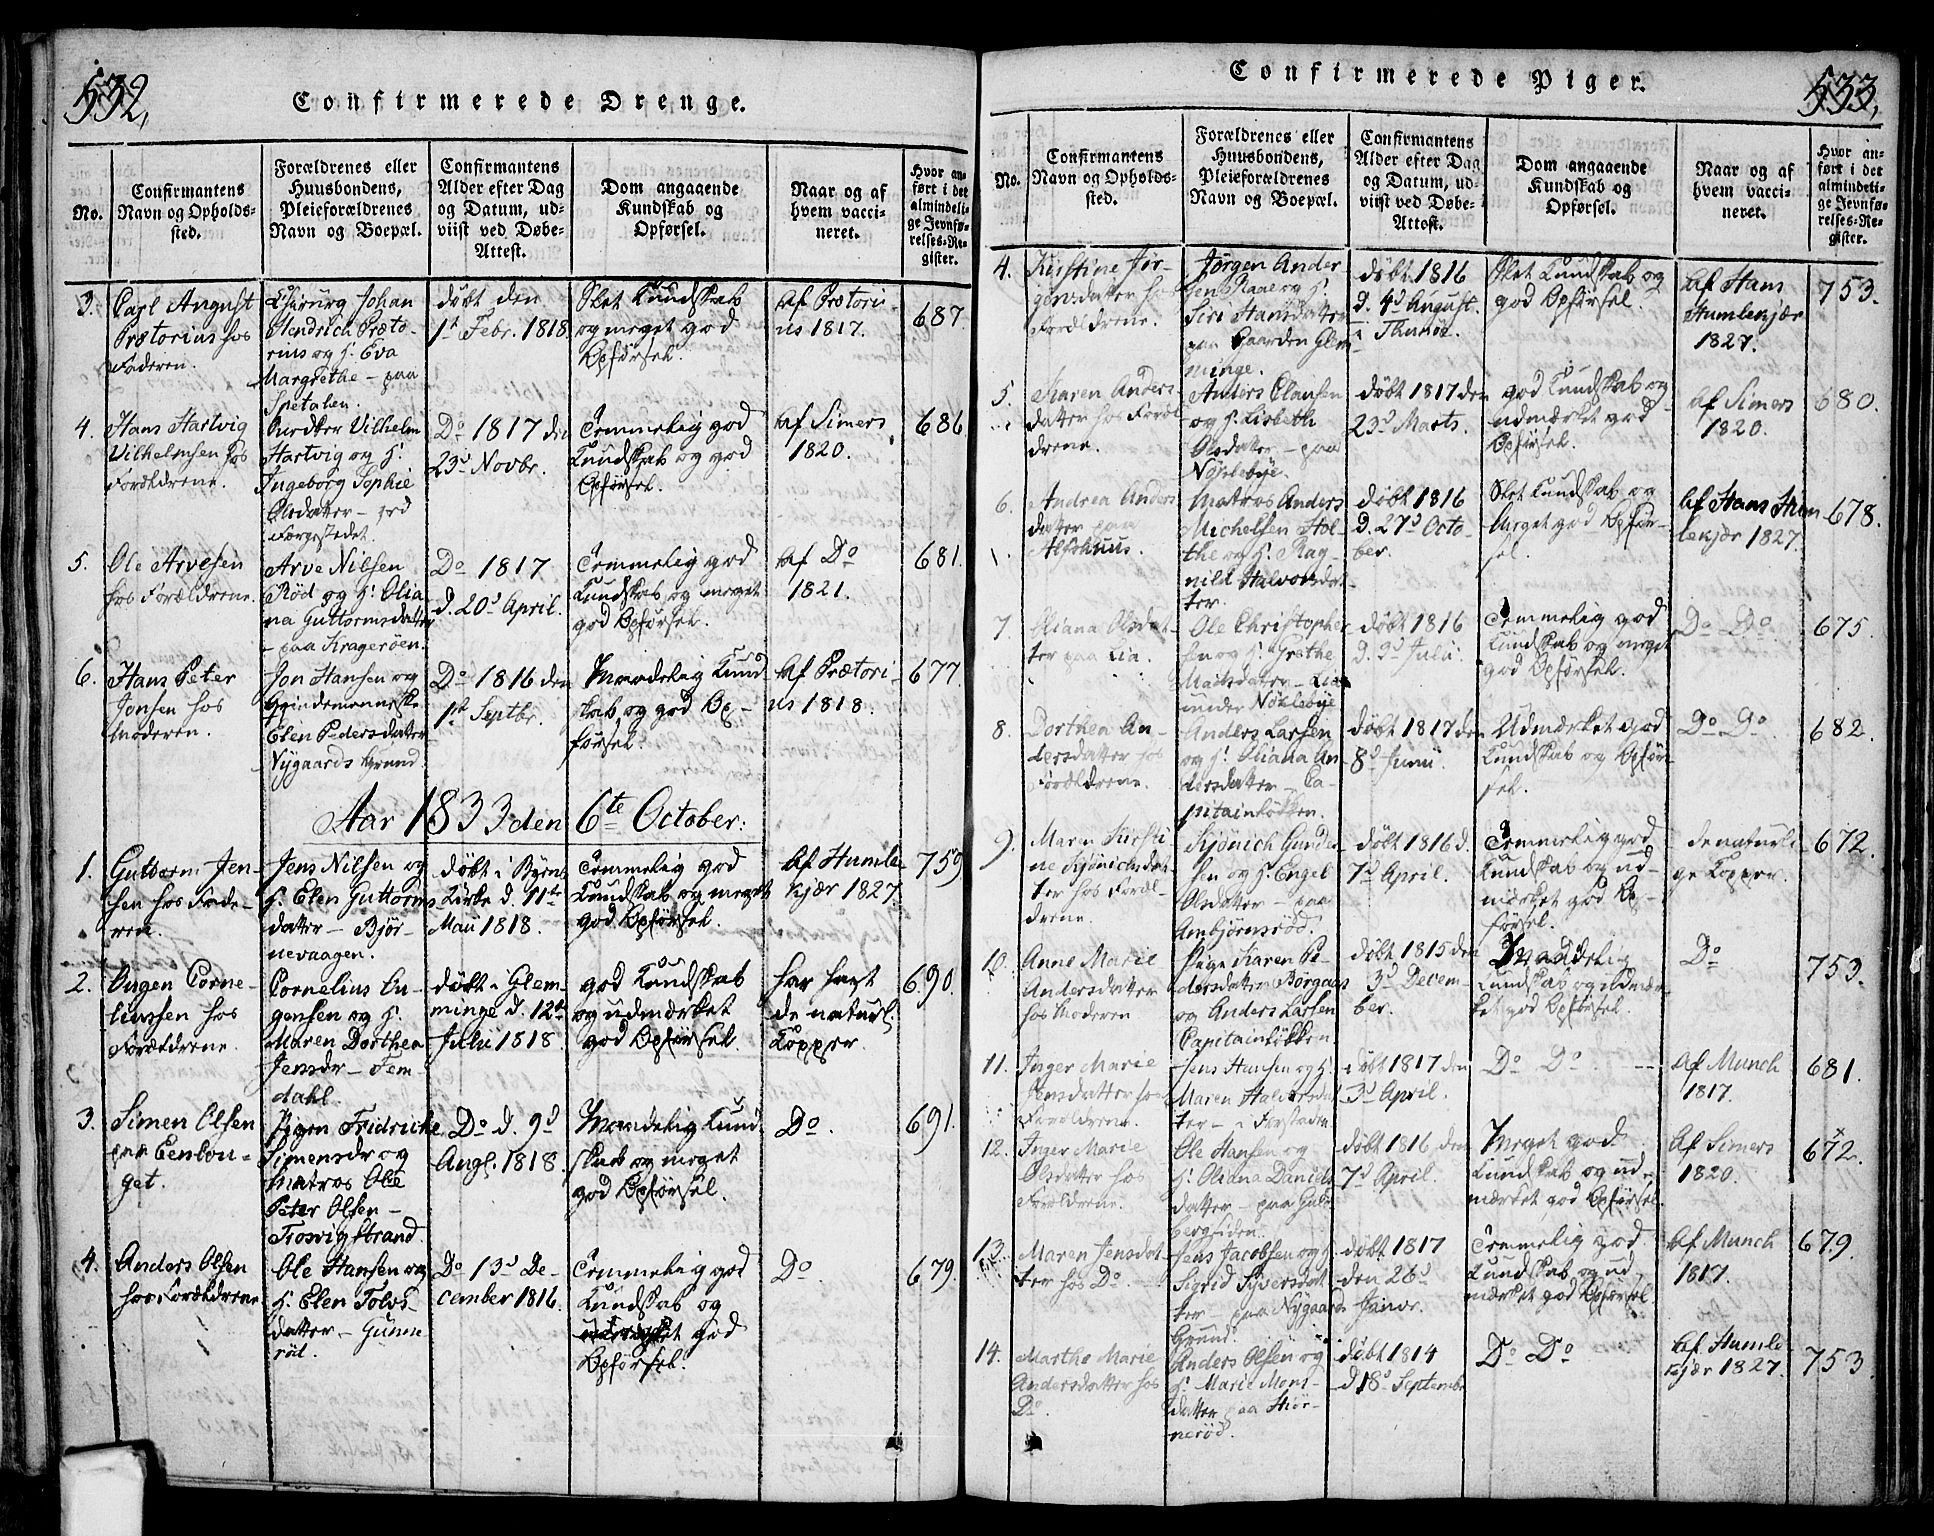 532,
Confirmerede Drenge.
No.
Confirmantens
Navn og Opholds-
sted.
Forældrenes eller
Huusbondens,
Pleieforældrenes
Navn og Boepæl.
Confirmantens
Alder efter Dag
og Datum, ud-
viist ved Døbe-
Attest.
Dom angaaende
Kundskab og
Opførsel.
Naar og af
hvem vacci-
neret.
Hvor an-
ført i det
almindeli-
ge Jevnfø-
relses-Re-
gister.
3.
Carl August
Prætorius hos
Faderen.
Chirurg Johan
Hendrich Præto-
rius og h. Eva
Margrethe - paa
Spetalen.
døbt den
1st Febr. 1818.
Slet Kundskab
og meget god
Opførsel.
af Prætori-
us 1817.
687
4.
Hans Hartvig
Vilhelmsen hos
Forældrene.
Vilhelm
Hartvig og h.
Ingeborg Sophie
Olsdatter - ved
Færgestedet.
Do 1817 den
23d Novbr.
Temmelig god
Kundskab og god
Opførsel.
af Simers
1820.
686
5.
Ole Arvesen
hos Forældrene.
Arve Nilsen
Rød og h. Olia
na Guttormsdatter
- paa Kragerøen.
Do 1817
d. 20d April.
Temmelig god
Kundskab og meget
god Opførsel.
af Do
1821.
681.
6.
Hans Peter
Jonsen hos
Moderen.
Jon Hansen og
Qvindemenneske
Elen Pedersdatter
Nygaards Grund.
Do 1816 den
1st Septbr.
Maadelig Kund
skab og god Op-
førsel.
Af Prætori-
us 1818.
677
Aar 1833 den 6te October:
1.
Guttorm Jen-
sen hos Fade-
ren.
Jens Nilsen og
h. Elen Guttorms
datter - Bjør-
nevaagen.
døbt i Byens
Kirke d. 11te
Mai 1818.
Temmelig god
Kundskab og meget
god Opførsel.
Af Humle
kjær 1827
759
2.
Ougen Corne-
liussen hos
Forældrene.
Cornelius Ou-
gensen og h.
Maren Dorthea
Jensdr - Fem-
dahl.
døbt i Glem-
minge d. 12te
Julii 1818.
god Kundskab
og udmærket
god Opførsel.
har havt
de naturl.
Kopper.
690.
3.
Simen Olsen
paa Eenhou-
get.
Pigen Fridriche
Simensdr og
Matros Ole
Peter Olsen -
Trosvigstrand.
Do d. 9d
Aug. 1818
Maadelig Kund
skab og meget
god Opførsel.
Do.
691.
4.
Anders Olsen
hos Forældrene
Ole Hansen og
h. Elen Tolvs-
datter - Gunne
rød.
Do 13d De-
cember 1816.
Temmelig god
Kundskab og
god
Opførsel.
Do.
679.
Confirmerede Piger.
533,
No.
Confirmantens
Navn og Opholds-
sted.
Forældrenes eller
Huusbondens,
Pleieforældrenes
Navn og Boepæl.
Confirmantens
Alder efter Dag
og Datum, ud-
viist ved Døbe-
Attest.
Dom angaaende
Kundskab og
Opførsel.
Naar og af
hvem vacci-
neret.
Hvor an-
ført i det
almindeli-
ge Jevnfø-
relses-Re-
gister.
4.
Kirstine Jør-
gensdatter hos
Forældrene.
Jørgen Ander
sen og h.
Siri Hansdatter
paa Gaarden Glem-
minge.
døbt 1816
d. 4d August.
i Thunøe.
Slet Kundskab og
god Opførsel.
af Hans
Humlekjær
1827.
753.
5.
Karen Anders-
datter hos Foræl
drene.
Anders Clausen
og h. Lisbeth
Olsdatter - paa
Nøklebye.
døbt 1817 den
23d Marts.
god Kundskab og
udmærket god
Opførsel.
af Simers
1820.
680.
6.
Andrea Anders
datter paa
Alfshuus.
Matros Anders
Michelsen Hol-
the og h. Rag-
nild Halvorsdat-
ter.
døbt 1816
d. 27d Octo-
ber.
Slet Kundskab og
Meget god Opfør-
sel.
Af Hans Hum
lekjær 1827.
678.
7.
Oliana Olsdat-
ter paa Lia.
Ole Christopher
sen og h. Grethe
Matsdatter - Lia
under Nøklebye
døbt 1816
d. 3d Julii.
Temmelig god
Kundskab og meget
god Opførsel.
Do Do
675.
8.
Dorthea An-
dersdatter hos
Forældrene.
Anders Larsen
og h. Oliana An
dersdatter - Ca-
pitainløkken.
døbt 1817 den
8d Junii.
Udmærket god
Kundskab og Opfør-
sel.
Do Do.
682.
9.
Maren Kirsti
ne Kjønichsdat
ter hos Foræl-
drene.
Kjønich Gunder
sen og h. Engel
Olsdatter - paa
Ambjørnsrød.
døbt 1816 d.
7d April.
Temmelig god
Kundskab og ud-
mærket god Op-
førsel.
de naturli-
ge Kopper.
672.
10.
Anne Marie
Andersdatter
hos Moderen
Pige Karen Pe-
dersdatter Borgaas
og Anders Larsen
Capitainløkken.
døbt 1815 den
3d Decem-
ber.
Maadelig
Kundskab og udmær-
ket god Opførsel.
Do
753.
11.
Inger Marie
Jensdatter hos
Forældrene.
Jens Hansen og h.
Maren Halvorsdat
ter - i Forstaden
døbt 1817 den
3d April.
Do Do.
Af Munch
1817.
681.
12.
Inger Marie
Olsdatter hos
Forældrene.
Ole Hansen og
h. Oliana Daniels
datter - paa Guld-
bergsiden.
døbt 1816 den
7d April.
Meget god
Kundskab og ud-
mærket god Opførsel
Af Simers
1820.
672.
13.
Maren Jensdat-
ter hos Do.
Jens Jacobsen og h.
Sigrid Syversdat
ter - paa Nygaards
Grund.
døbt 1817
den 26d
Janvr.
Temmelig god
Kundskab og ud-
mærket god Opførsel
Af Munch
1817.
679.
14.
Marthe Marie
Andersdatter hos
Do.
Anders Olsen og
h. Marie Mons-
datter paa Hiør-
nerød.
døbt 1814
d 18d Septembr
Do Do
Af Humle
kjær 1827.
753